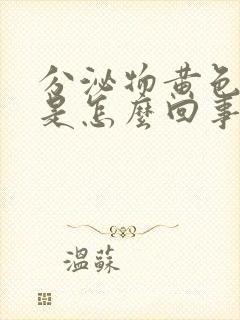 分泌物黄色
是怎麼回事
溫蘇